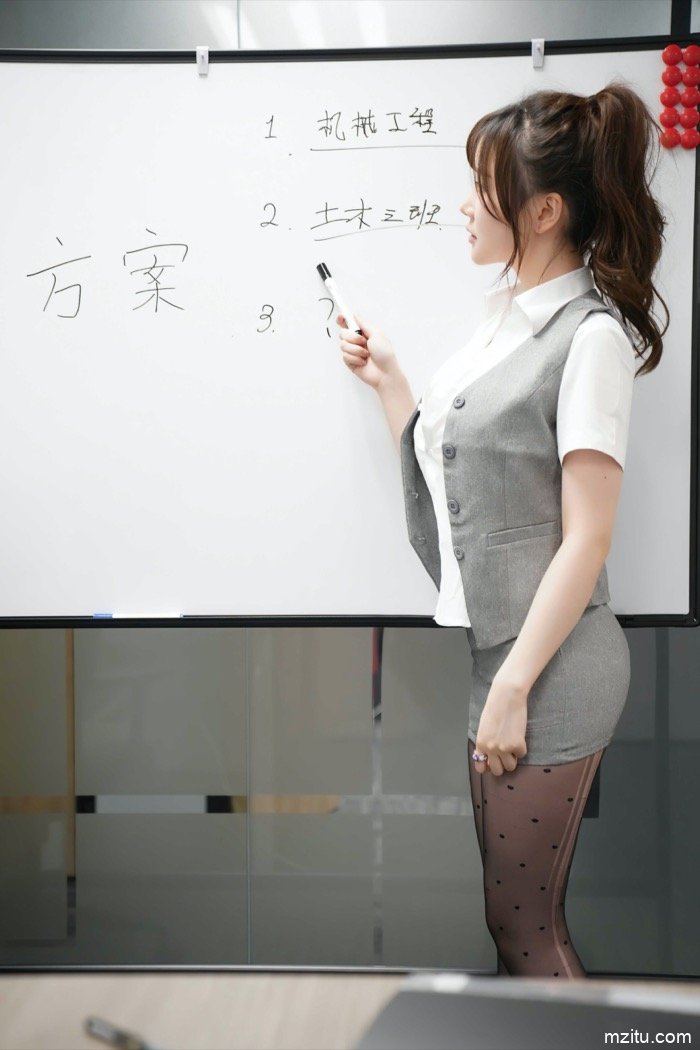 方案
1. 机械工程
2. 土木三班
3. ?
mzitu.com